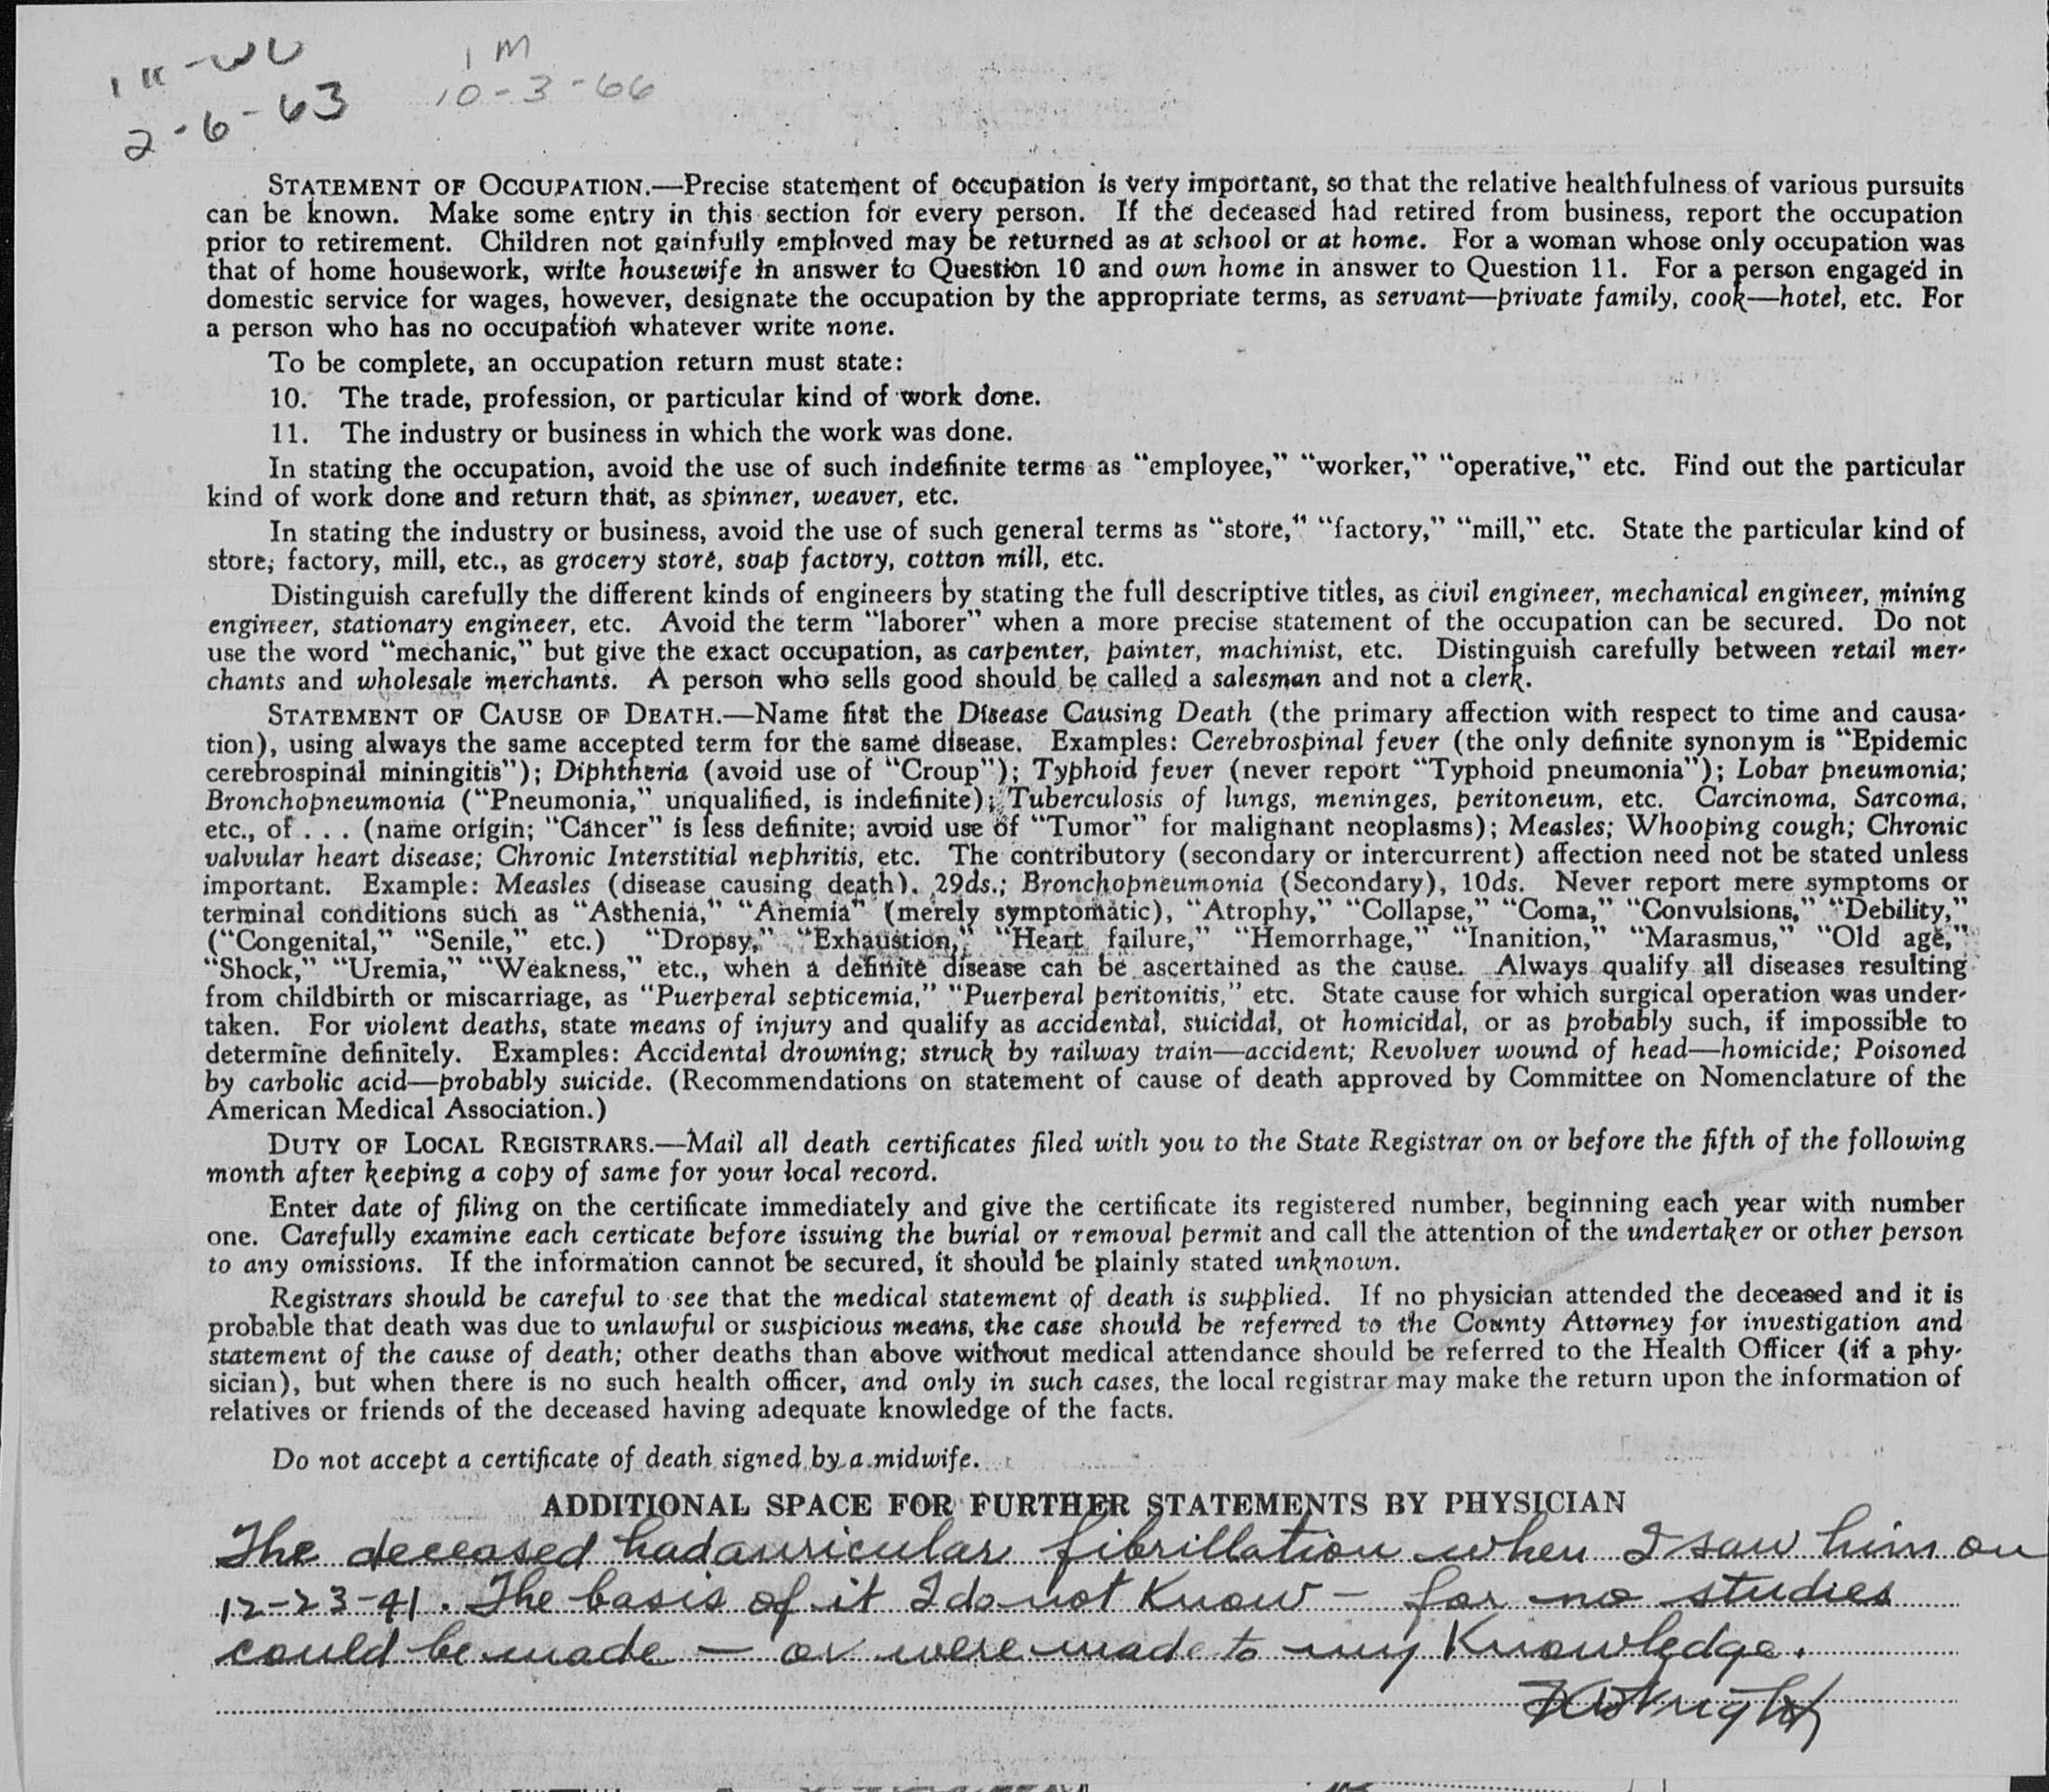 1 M
2-6-63
10-3-66
STATEMENT OF OCCUPATION.—Precise statement of occupation is very important, so that the relative healthfulness of various pursuits
can be known. Make some entry in this section for every person. If the deceased had retired from business, report the occupation
prior to retirement. Children not gainfully employed may be returned as at school or at home. For a woman whose only occupation was
that of home housework, write housewife in answer to Question 10 and own home in answer to Question 11. For a person engaged in
domestic service for wages, however, designate the occupation by the appropriate terms, as servant—private family, cook—hotel, etc. For
a person who has no occupation whatever write none.
To be complete, an occupation return must state:
10. The trade, profession, or particular kind of work done.
11. The industry or business in which the work was done.
In stating the occupation, avoid the use of such indefinite terms as “employee,” “worker,” “operative,” etc. Find out the particular
kind of work done and return that, as spinner, weaver, etc.
In stating the industry or business, avoid the use of such general terms as “store,” “factory,” “mill,” etc. State the particular kind of
store, factory, mill, etc., as grocery store, soap factory, cotton mill, etc.
Distinguish carefully the different kinds of engineers by stating the full descriptive titles, as civil engineer, mechanical engineer, mining
engineer, stationary engineer, etc. Avoid the term “laborer” when a more precise statement of the occupation can be secured. Do not
use the word “mechanic,” but give the exact occupation, as carpenter, painter, machinist, etc. Distinguish carefully between retail mer-
chants and wholesale merchants. A person who sells good should be called a salesman and not a clerk.
STATEMENT OF CAUSE OF DEATH.—Name first the Disease Causing Death (the primary affection with respect to time and causa-
tion), using always the same accepted term for the same disease. Examples: Cerebrospinal fever (the only definite synonym is “Epidemic
cerebrospinal miningitis”); Diphtheria (avoid use of “Croup”); Typhoid fever (never report “Typhoid pneumonia”); Lobar pneumonia;
Bronchopneumonia (“Pneumonia,” unqualified, is indefinite); Tuberculosis of lungs, meninges, peritoneum, etc. Carcinoma, Sarcoma,
etc., of . . . (name origin; “Cancer” is less definite; avoid use of “Tumor” for malignant neoplasms); Measles; Whooping cough; Chronic
valvular heart disease; Chronic Interstitial nephritis, etc. The contributory (secondary or intercurrent) affection need not be stated unless
important. Example: Measles (disease causing death), 29ds.; Bronchopneumonia (Secondary), 10ds. Never report mere symptoms or
terminal conditions such as “Asthenia,” “Anemia” (merely symptomatic), “Atrophy,” “Collapse,” “Coma,” “Convulsions,” “Debility,”
(“Congenital,” “Senile,” etc.) “Dropsy,” “Exhaustion,” “Heart failure,” “Hemorrhage,” “Inanition,” “Marasmus,” “Old age,”
“Shock,” “Uremia,” “Weakness,” etc., when a definite disease can be ascertained as the cause. Always qualify all diseases resulting
from childbirth or miscarriage, as “Puerperal septicemia,” “Puerperal peritonitis,” etc. State cause for which surgical operation was under-
taken. For violent deaths, state means of injury and qualify as accidental, suicidal, or homicidal, or as probably such, if impossible to
determine definitely. Examples: Accidental drowning; struck by railway train—accident; Revolver wound of head—homicide; Poisoned
by carbolic acid—probably suicide. (Recommendations on statement of cause of death approved by Committee on Nomenclature of the
American Medical Association.)
DUTY OF LOCAL REGISTRARS.—Mail all death certificates filed with you to the State Registrar on or before the fifth of the following
month after keeping a copy of same for your local record.
Enter date of filing on the certificate immediately and give the certificate its registered number, beginning each year with number
one. Carefully examine each certicate before issuing the burial or removal permit and call the attention of the undertaker or other person
to any omissions. If the information cannot be secured, it should be plainly stated unknown.
Registrars should be careful to see that the medical statement of death is supplied. If no physician attended the deceased and it is
probable that death was due to unlawful or suspicious means, the case should be referred to the County Attorney for investigation and
statement of the cause of death; other deaths than above without medical attendance should be referred to the Health Officer (if a phy-
sician), but when there is no such health officer, and only in such cases, the local registrar may make the return upon the information of
relatives or friends of the deceased having adequate knowledge of the facts.
Do not accept a certificate of death signed by a midwife.
ADDITIONAL SPACE FOR FURTHER STATEMENTS BY PHYSICIAN
The deceased had auricular fibrillation when I saw him on
12-23-41. The basis of it I do not Know – for no studies
could be made – or were made to my Knowledge.
Wright